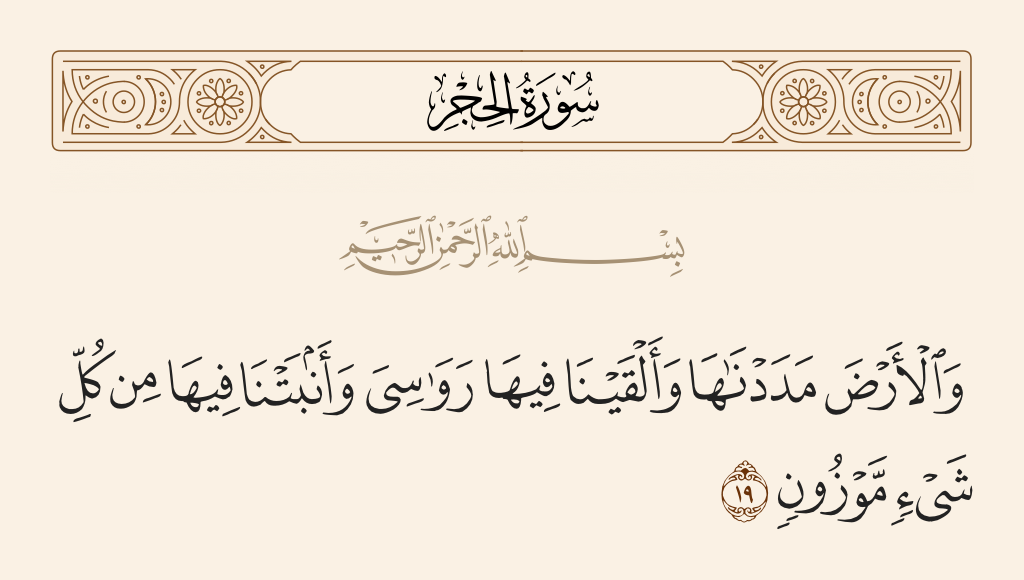 سُورَةُ الحِجْرِ
بِسْمِ ٱللَّهِ ٱلرَّحْمَٰنِ ٱلرَّحِيمِ
وَٱلْأَرْضَ مَدَدْنَٰهَا وَأَلْقَيْنَا فِيهَا رَوَٰسِىَ وَأَنۢبَتْنَا فِيهَا مِن كُلِّ
شَىْءٍ مَّوْزُونٍ ١٩